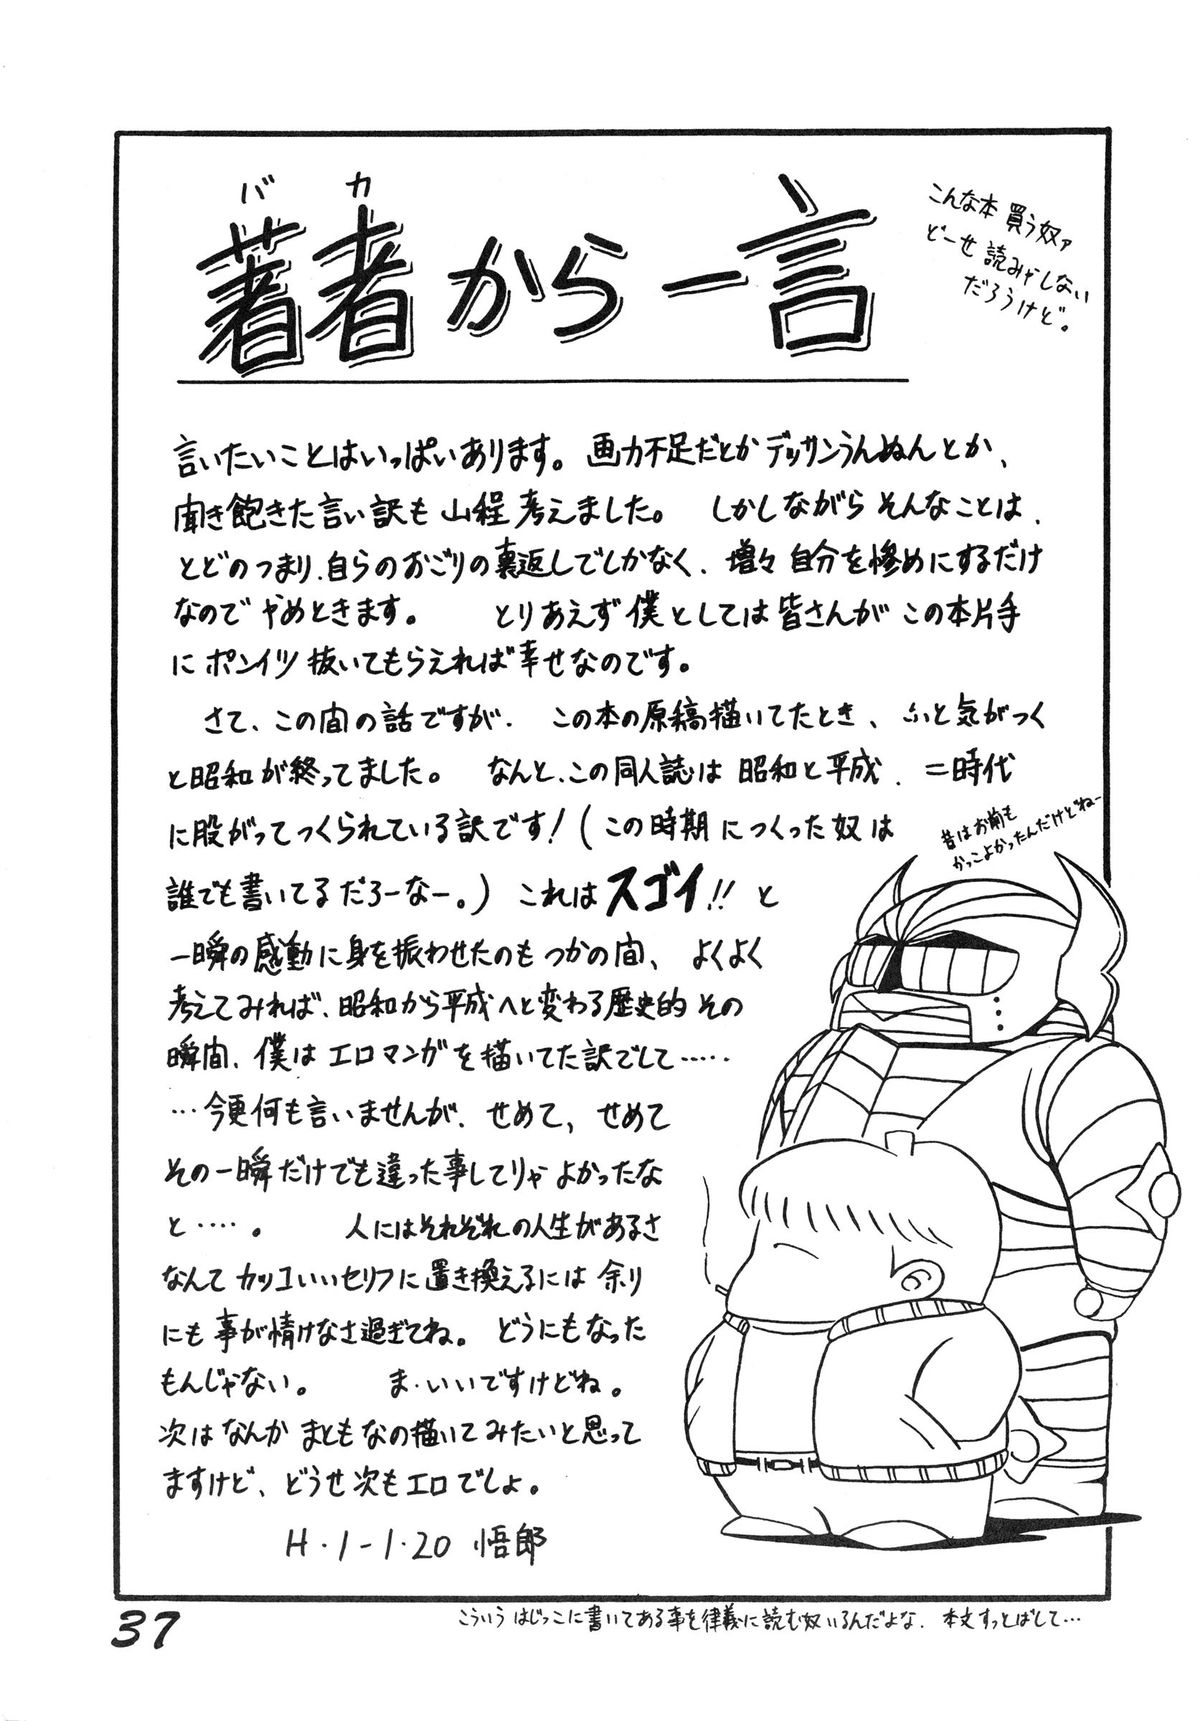 バカ
著者から一言
こんな本 買う奴ァ
どーせ 読みゃしない
だろうけど。
言いたいことはいっぱいあります。画力不足だとか デッサンうんぬんとか、
聞き飽きた言い訳も 山程 考えました。 しかしながら そんなことは、
とどのつまり、自らのおごりの裏返しでしかなく、増々 自分を惨めにするだけ
なので やめときます。 とりあえず 僕としては 皆さんが この本片手
に ポンイツ 抜いてもらえれば 幸せなのです。
さて、この間の話ですが、 この本の原稿描いてたとき、ふと気がつく
と昭和が終ってました。 なんと、この同人誌は 昭和と平成、二時代
に股がってつくられている訳です!(この時期につくった奴は
誰でも書いてるだろーなー。) これは スゴイ!! と
一瞬の感動に身を振わせたのも つかの間、 よくよく
考えてみれば、昭和から平成へと変わる歴史的 その
瞬間、僕は エロマンガを描いてた訳でして……
…今更何も言いませんが、せめて、せめて
その一瞬だけでも違った事してりゃ よかったな
と……。 人にはそれぞれの人生があるさ
なんて カッコいいセリフに置き換えるには 余り
にも 事が情けなさ過ぎてね。 どうにもなった
もんじゃない。 ま、いいですけどね。
次は なんか まともなの描いてみたいと思って
ますけど、どうせ次もエロでしょ。
H・1-1・20 悟郎
昔はお前も
かっこよかったんだけどねー
37
こういう はじっこに書いてある事を律義に読む奴いるんだよな、本文すっとばして…